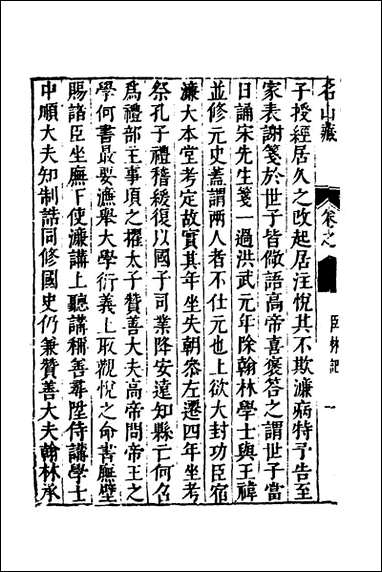 名山藏
卷之
臣林記
一
子授經居久之改起居注悅其不欺濂病特予告至
家表謝箋於世子皆儆語高帝喜褒答之謂世子當
日誦宋先生箋一過洪武元年除翰林學士與王禕
並修元史蓋謂兩人者不仕元也上欲大封功臣宿
濂大本堂考定故實其年坐失朝叅左遷四年坐考
祭孔子禮稽緩復以國子司業降安遠知縣亡何召
爲禮部主事頃之擢太子贊善大夫高帝問帝王之
學何書最要濂舉大學衍義上取觀悅之命書廡壁
賜諸臣坐廡下使濂講上聽講稱善尋陞侍講學士
中順大夫知制誥同修國史仍兼贊善大夫翰林承